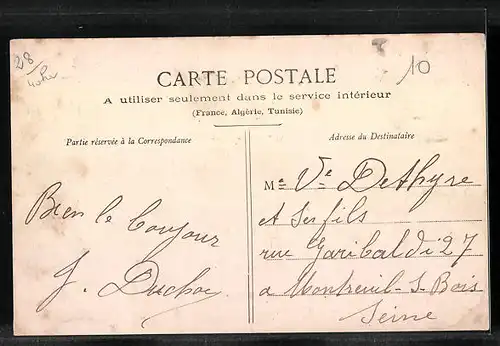 28
10
CARTE POSTALE
A utiliser seulement dans le service intérieur
(France, Algérie, Tunisie)
Partie réservée à la Correspondance
Adresse du Destinataire
Bien le bonjour
J.
Me Ve Dethyre
et ses fils
rue Garibaldi 27
a Montreuil-S-Bois
Seine